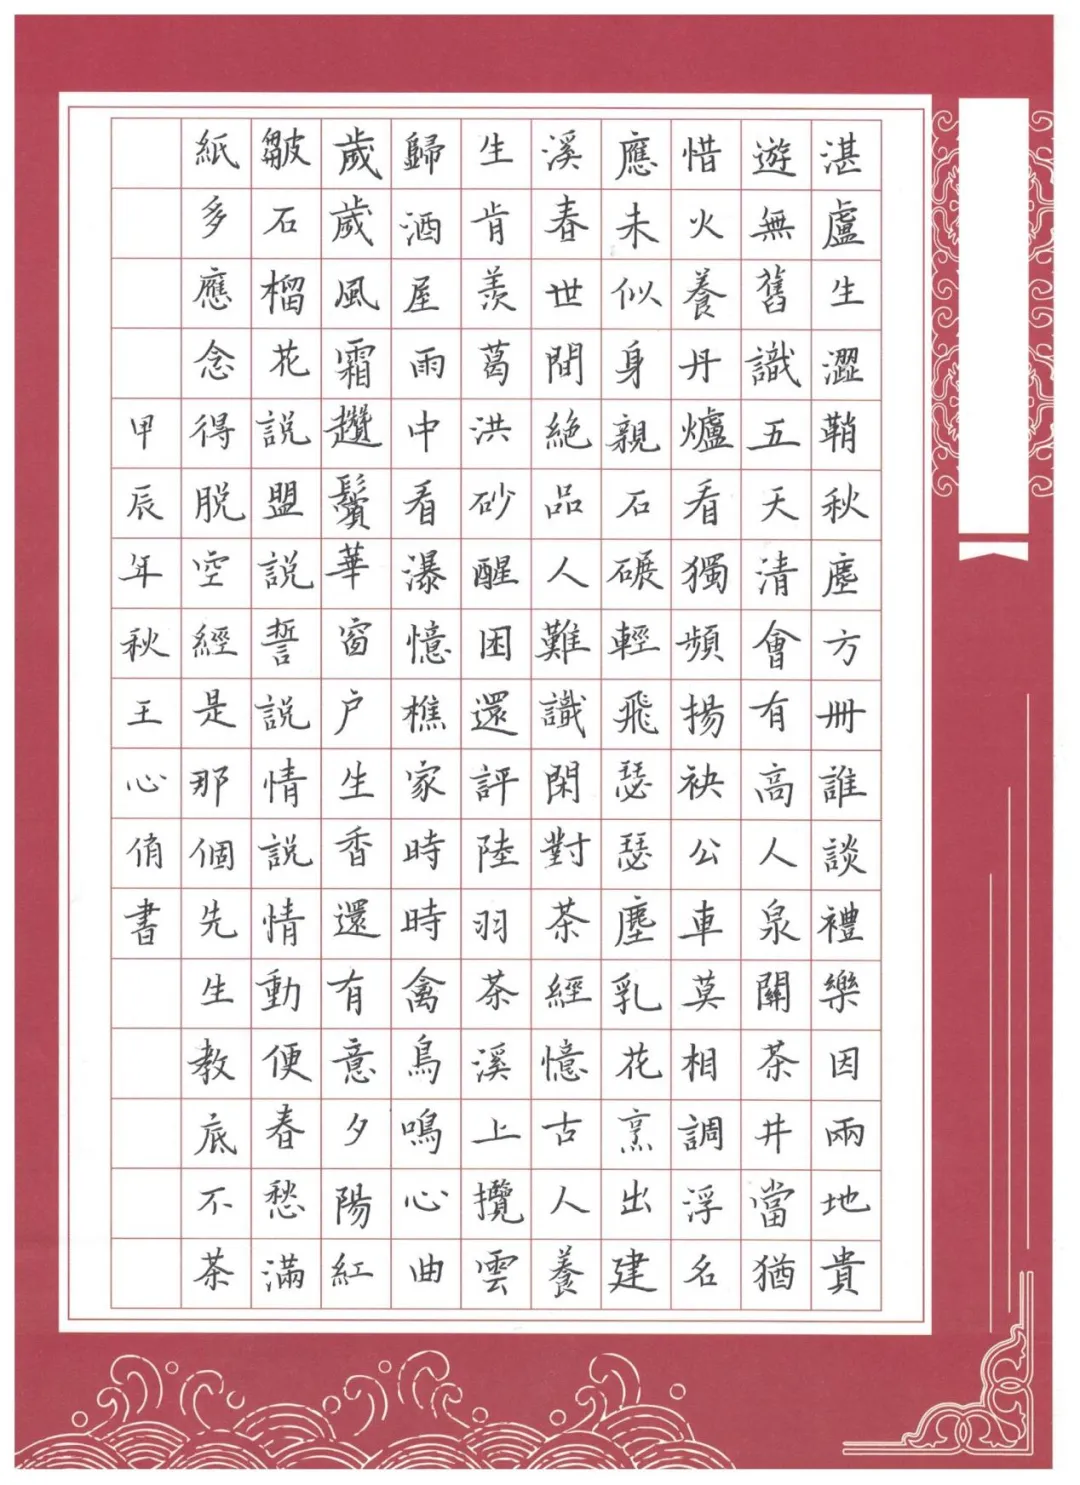 湛盧生澀鞘秋塵方冊誰談禮樂因兩地貴
遊無舊識五天清會有高人泉關茶井當猶
惜火養丹爐看獨頻揚袂公車莫相調浮名
應未似身親石碾輕飛瑟瑟塵乳花烹出建
溪春世間絕品人難識閑對茶經憶古人養
生肯羨葛洪砂醒困還評陸羽茶溪上攬雲
歸酒屋雨中看瀑憶樵家時時禽鳥鳴心曲
歲歲風霜趲鬢華窗户生香還有意夕陽紅
皺石榴花說盟說誓說情說情動便春愁滿
紙多應念得脱空經是那個先生教底不茶
甲辰年秋王心俏書